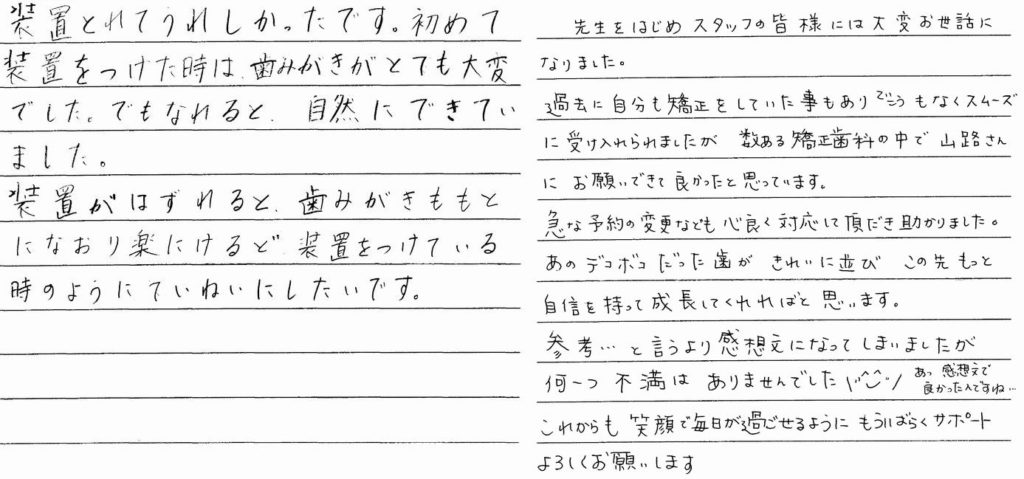 装置とれてうれしかったです。初めて
装置をつけた時は、歯みがきがとても大変
でした。でもなれると、自然にできてい
ました。
装置がはずれると、歯みがきももと
になおり楽にけるど、装置をつけている
時のようにていねいにしたいです。
先生をはじめ スタッフの皆様には大変お世話に
なりました。
過去に自分も矯正をしていた事もあり ていこうもなくスムーズ
に受け入れられましたが 数ある矯正歯科の中で 山路さん
に お願いできて良かったと思っています。
急な予約の変更なども 心良く対応して頂だき助かりました。
あのデコボコだった歯が きれいに並び この先もっと
自信を持って成長してくれればと思います。
参考… と言うより感想文になってしまいましたが
何一つ 不満は ありませんでした\(^^)/ あっ 感想文で
良かったんですね…
これからも 笑顔で毎日が過ごせるように もうしばらくサポート
よろしくお願いします